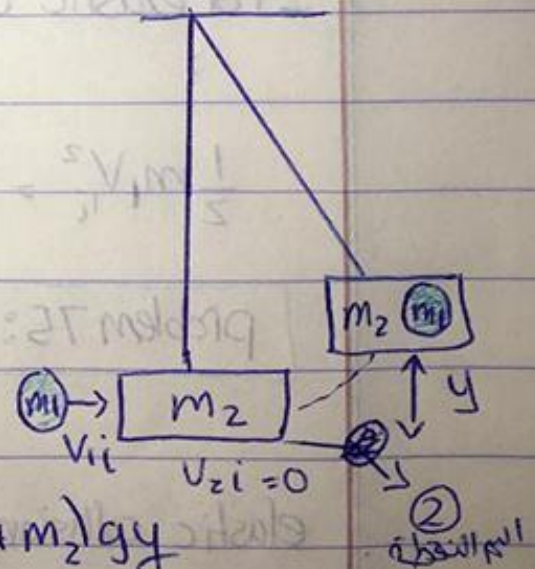 m₂ m₁
m₁ → m₂ y
V₁i V₂i = 0
②
m₂) gy